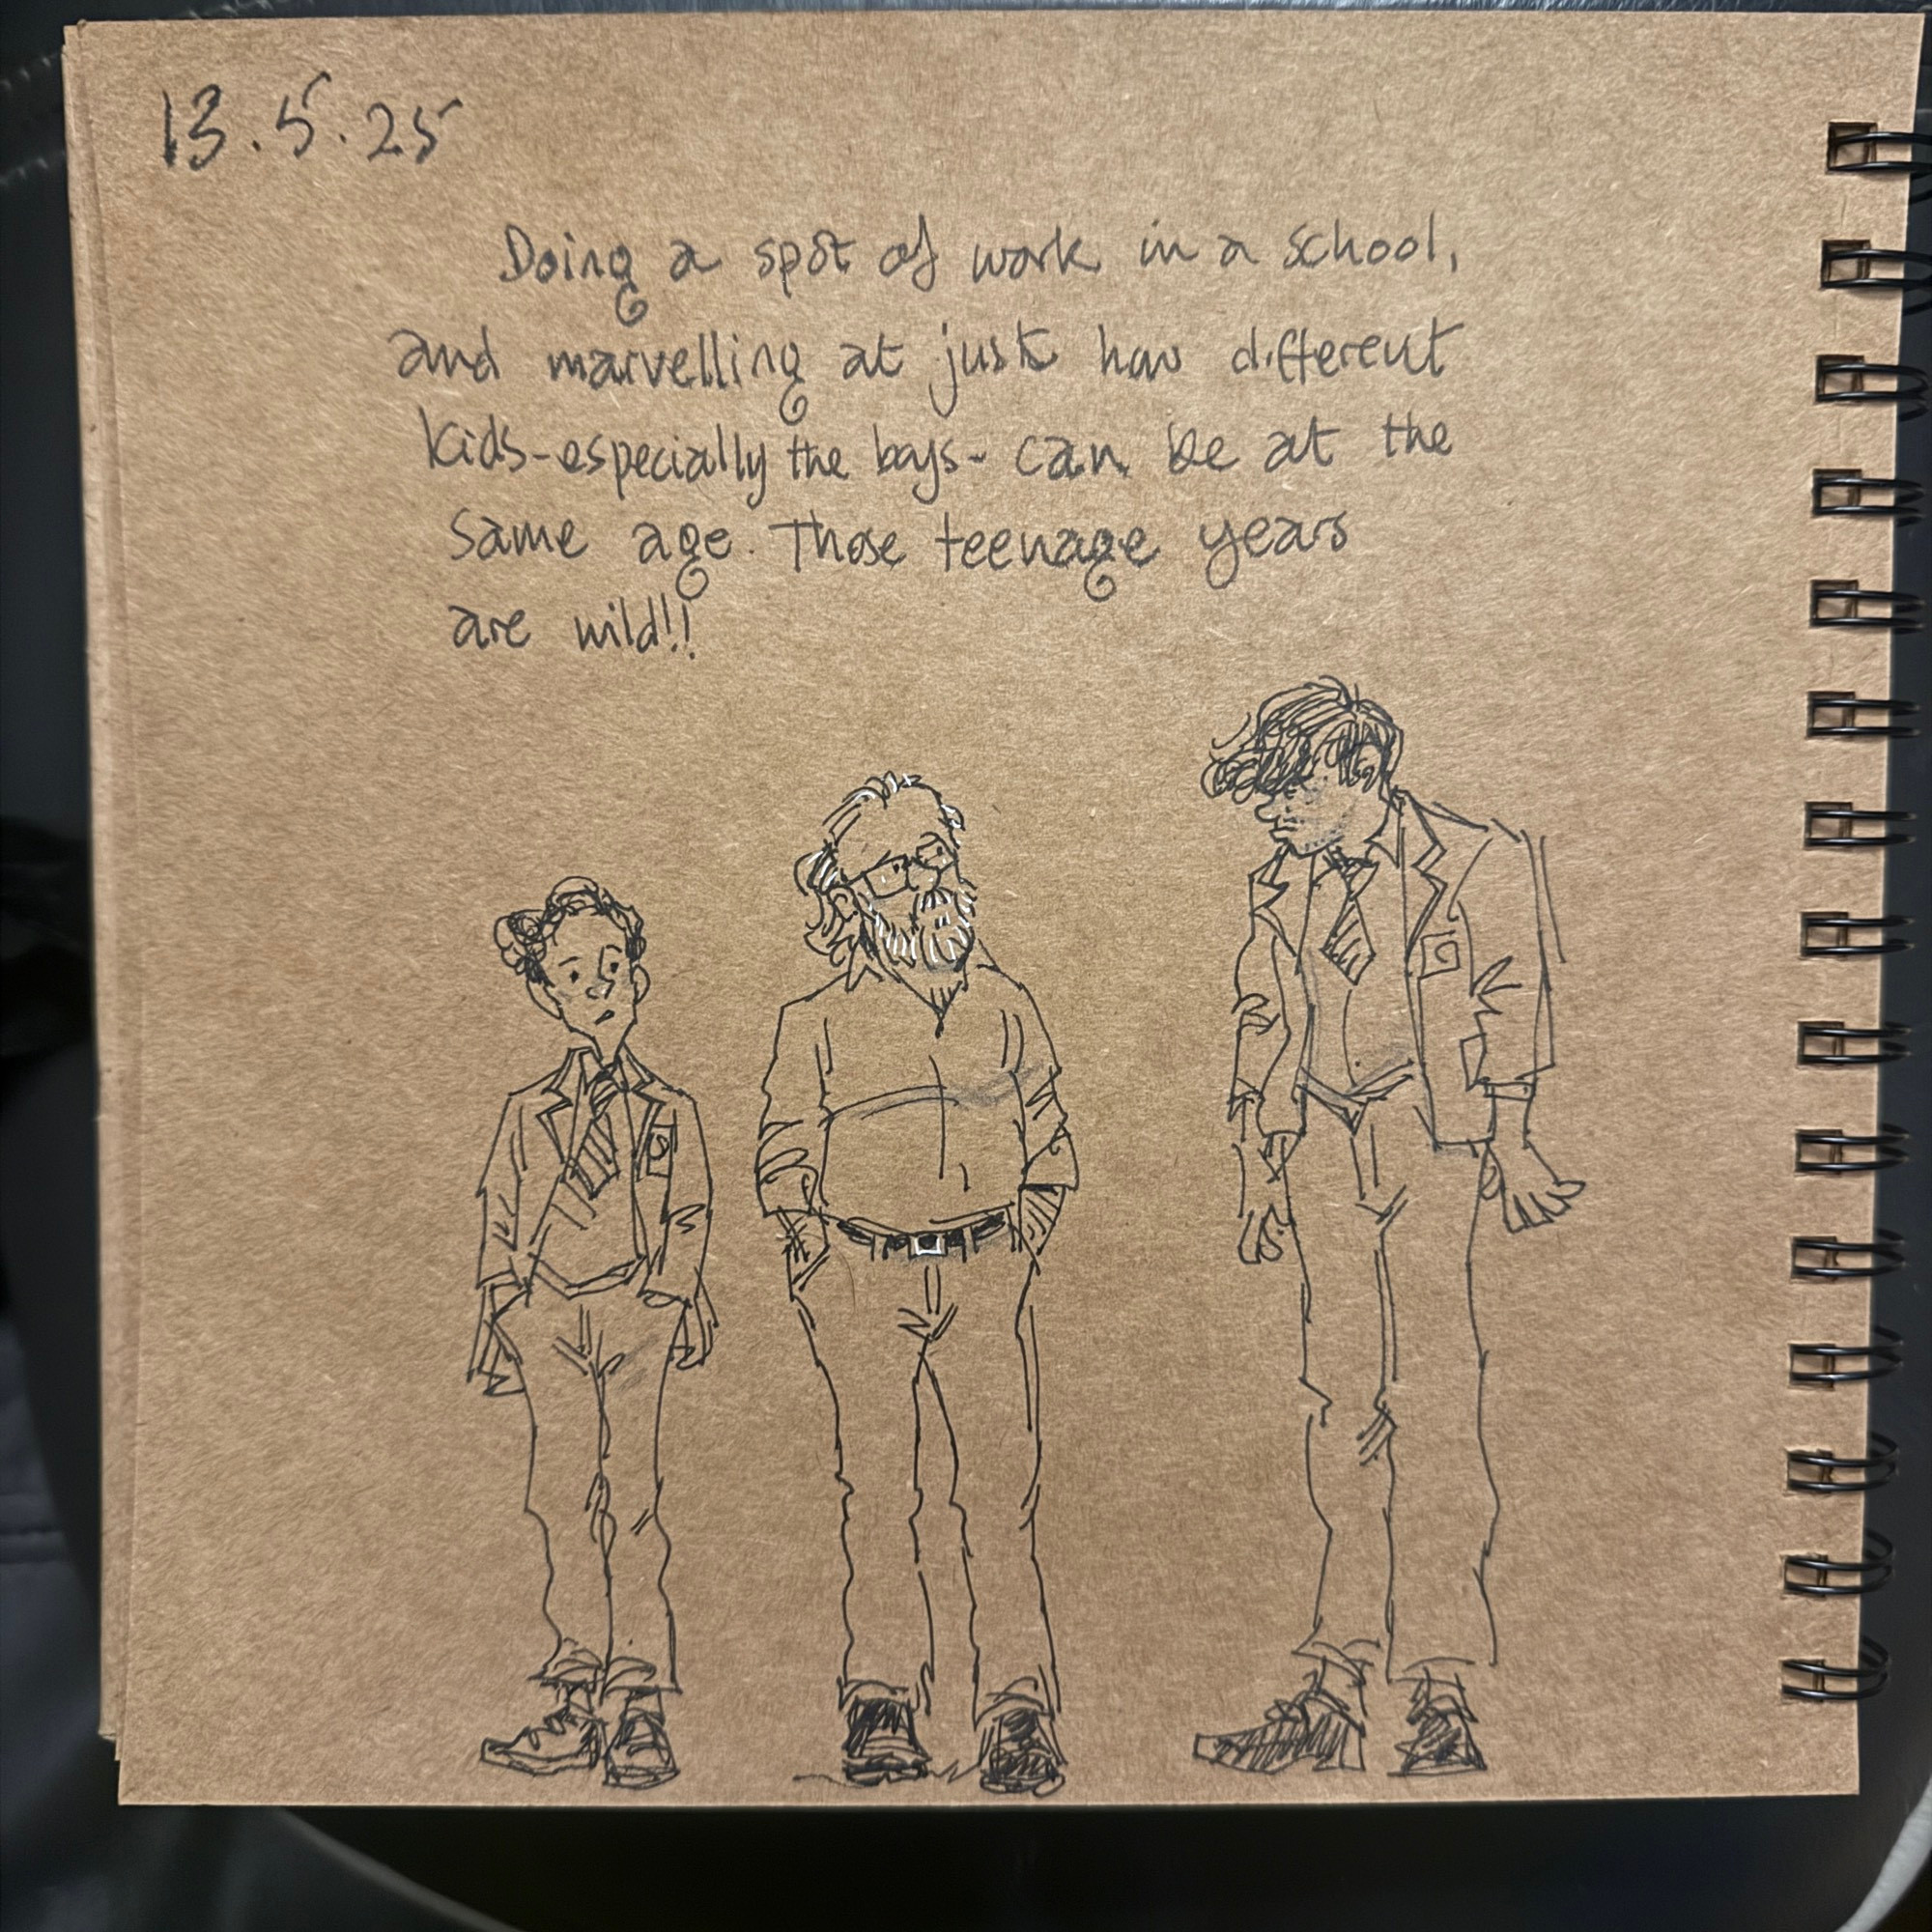 13.5.25
Doing a spot of work in a school,
and marvelling at just how different
kids-especially the boys- can be at the
same age. Those teenage years
are wild!!